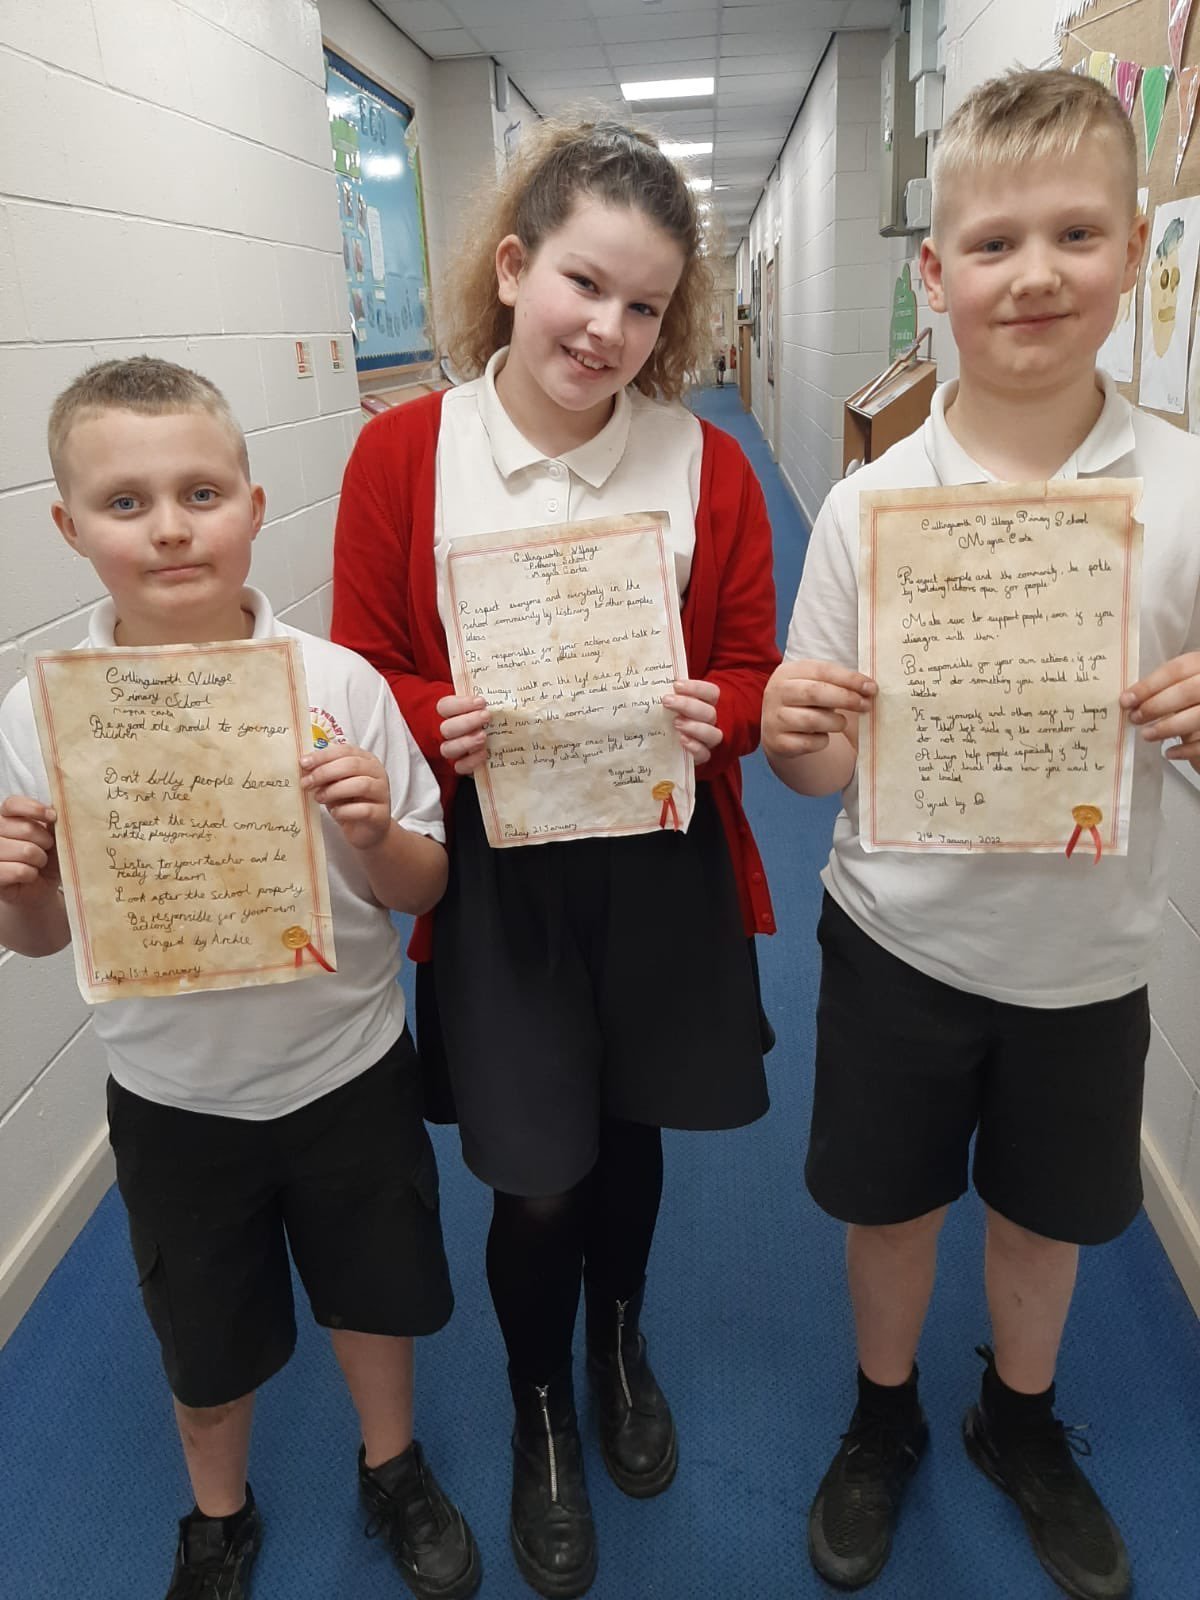 Cullingworth Village
Primary School
Magna Carta
Be a good role model to younger
children
Don't bully people because
it's not nice
Respect the school community
and the playgrounds.
Listen to your teacher and be
ready to learn
Look after the school property
Be responsible for your own
actions.
singed by Archie
21st January
Cullingworth Village
Primary School
Magna Carta
Respect everyone and everybody in the
school community by listening to other peoples
ideas.
Be responsible for your actions and talk to
your teachers in a polite way.
Always walk on the left side of the corridor
cause if you do not you could walk into
Do not run in the corridor you may hit
someone
Influence the younger ones by being nice,
kind and doing what you're told.
Signed By
on
Friday 21 January
Cullingworth Village Primary School
Magna Carta
Respect people and the community, be polite
by holding doors open for people.
Make sure to support people, even if you
disagree with them.
Be responsible for your own actions, if you
say or do something you should tell a
Keep yourself and others safe by keeping
to the left side of the corridor and
do not run
Always help people especially if they
need it treat others how you want to
be treated
Signed by
21st January 2022